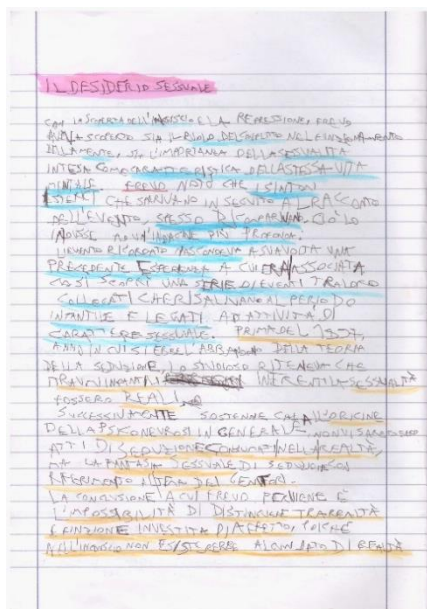 IL DESIDERIO SESSUALE
CON LA SCOPERTA DELL'INCONSCIO E LA REPRESSIONE, FREUD
AVEVA SCOPERTO SIA IL RUOLO DEL NEL FUNZIONAMENTO
DELLA MENTE, SIA L'IMPORTANZA DELLA SESSUALITÀ
INTESA COME CARATTERISTICA DELLA STESSA VITA
MENTALE. FREUD NOTÒ CHE I SINTOMI
ISTERICI CHE SARIVANO IN SEGUITO AL RACCONTO
DELL'EVENTO, SPESSO DI COMPARIVANO. CIÒ LO
INDUSSE AD UN'INDAGINE PIÙ PROFONDA.
L'EVENTO RICORDATO NASCONDEVA A SUA VOLTA UNA
PRECEDENTE ESPERIENZA A CUI ERA ASSOCIATA
COSÌ SCOPRÌ UNA SERIE DI EVENTI TRA LORO
COLLOCATI CHE RISALIVANO AL PERIODO
INFANTILE E LEGATI AD ATTIVITÀ DI
CARATTERE SESSUALE. PRIMA DEL 1897,
ANNO IN CUI SI EBBE L'ABBA DELLA TEORIA
DELLA SEDUZIONE, LO STUDIOSO RITENEVA CHE
I TRAUMI INFANTILI INERENTI LA SESSUALITÀ
FOSSERO REALI.
SUCCESSIVAMENTE SOSTENNE CHE ALL'ORIGINE
DELLA PSICONEVROSI IN GENERALE NON VI SAREBBERO
ATTI DI SEDUZIONE CONSUMATI NELLA REALTÀ,
MA LA FANTASIA SESSUALE DI SEDUZIONE IN
RIFERIMENTO A UNO DEI GENITORI.
LA CONCLUSIONE A CUI FREUD PERVIENE È
L'IMPOSSIBILITÀ DI DISTINGUERE TRA REALTÀ
E FINZIONE INVESTITA DI AFFETTO, POICHÉ
NELL'INCONSCIO NON ESISTEREBBE ALCUN DATO DI REALTÀ